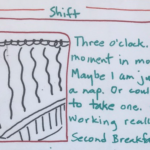 Shift
Three o'clock.
moment in mo
Maybe I am ju
a nap. Or coul
to take one.
Working reall
Second Breakf